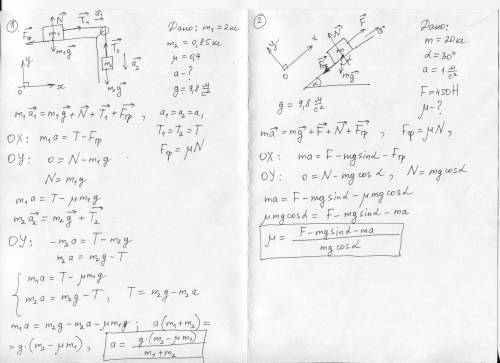 ①
N⃗ T⃗₁ a⃗₁
F⃗тр m₁
m₁g⃗
T⃗₂
m₂ a⃗₂
m₂g⃗
y
0 x
Дано: m₁ = 2кг
m₂ = 0,85кг
μ = 0,4
a - ?
g = 9,8 м/с²
m₁a⃗₁ = m₁g⃗ + N⃗ + T⃗₁ + F⃗тр , a₁ = a₂ = a,
T⃗₁ = T⃗₂ = T
Fтр = μN
OX: m₁a = T - Fтр
OY: 0 = N - m₁g
N = m₁g
m₁a = T - μm₁g
m₂a⃗₂ = m₂g⃗ + T⃗₂
OY: -m₂a = T - m₂g
m₂a = m₂g - T
{ m₁a = T - μm₁g
m₂a = m₂g - T , T = m₂g - m₂a
m₁a = m₂g - m₂a - μm₁g ; a(m₁+m₂) =
= g·(m₂ - μm₁) , a = g·(m₂ - μm₁) / m₁+m₂
②
y x
0
N⃗ F⃗
a⃗
m
F⃗тр
α
mg⃗
g = 9,8 м/с²
Дано:
m = 20кг
α = 30°
a = 1 м/с²
F = 450Н
μ - ?
ma⃗ = mg⃗ + F⃗ + N⃗ + F⃗тр , Fтр = μN ,
OX: ma = F - mgsinα - Fтр
OY: 0 = N - mgcosα , N = mgcosα
ma = F - mgsinα - μmgcosα
μmgcosα = F - mgsinα - ma
μ = F - mgsinα - ma / mgcosα